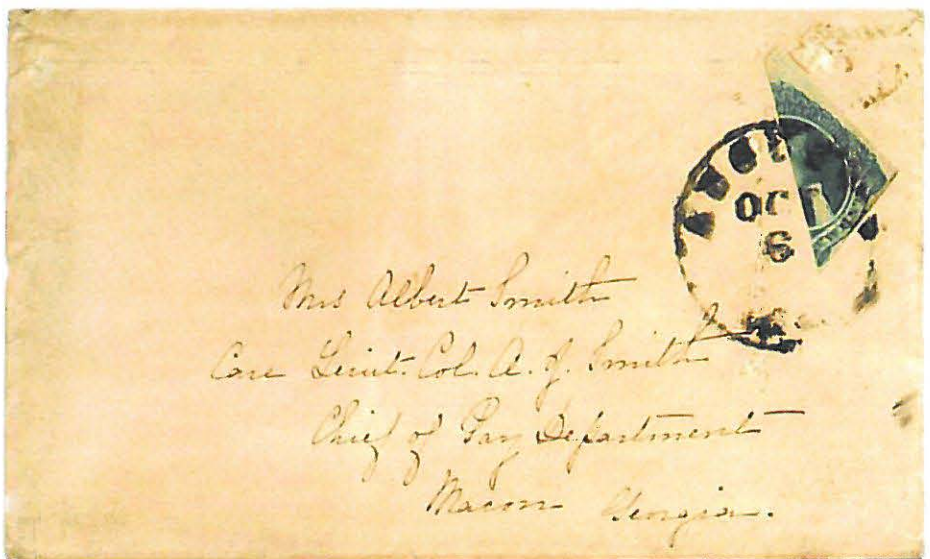 AUGU
OCT
6
Mrs Albert Smith
Care Lieut. Col. A. J. Smith
Chief of Pay Department
Macon Georgia.